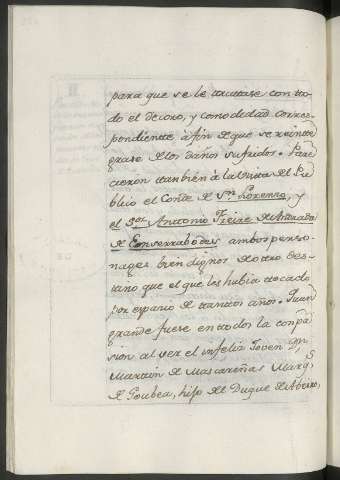 para que se le tratase con to-
do el decoro, y comodidad corres-
pondiente á fin de que se reinte-
grase de los daños sufridos. Pare-
cieron tambien à la vista del Pu-
blico el Conde de Sn. Lorenzo, y
el Sor. Antonio Freire de Andrada
de Enserrabodes ambos perso-
nages bien dignos de otro des-
tino que el que les habia tocado
por espacio de tantos años. Quan
grande fuese en todos la compa-
sion al ver el infeliz Joven Dn.
Martin de Mascareñas Marqs.
de Goubea, hijo del Duque de Abeiro,